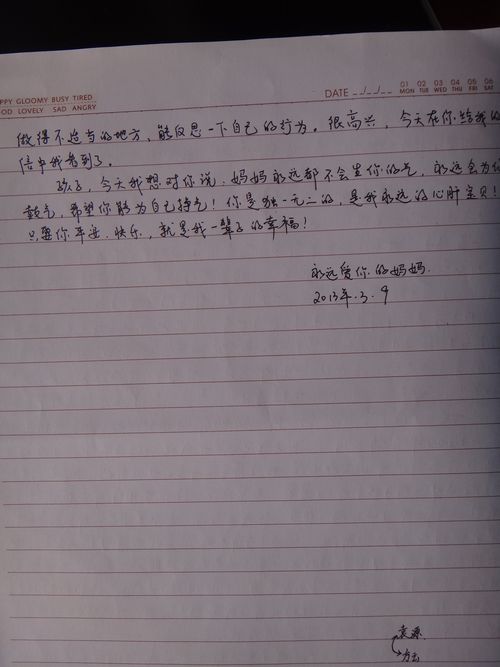 PPY GLOOMY BUSY TIRED
OOD LOVELY SAD ANGRY
DATE _/_/_
01 02 03 04 05 06
MON TUE WED THU FRI SAT
做得不适当的地方，能反思一下自己的行为。很高兴，今天在你给我的
信中我看到了。
孩子，今天我想对你说，妈妈永远都不会生你的气，永远会为你
鼓气，希望你能为自己争气！你是独一无二的，是我永远的心肝宝贝！
只要你平安、快乐，就是我一辈子的幸福！
永远爱你的妈妈
2013年.3.9